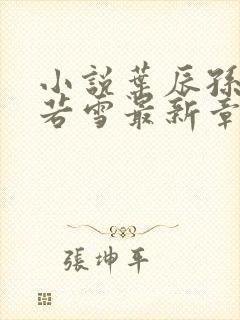 小說葉辰孫
若雪最新章
張坤平